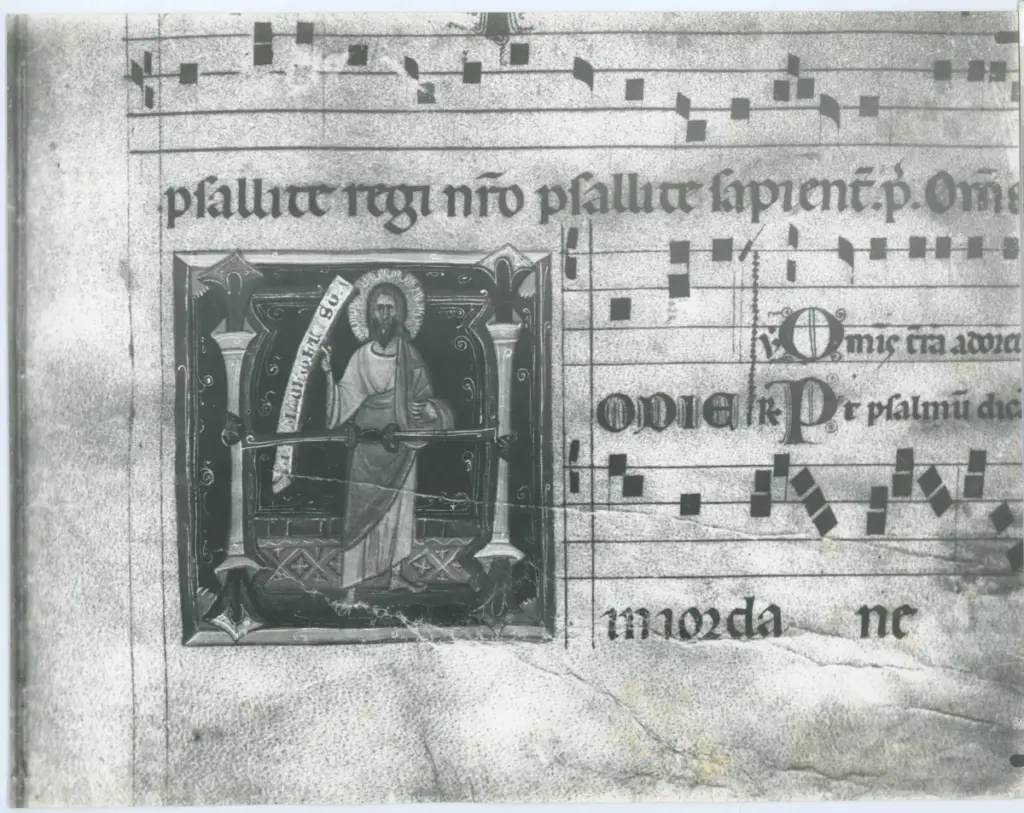 psallite regi nr̄o psallite sapient̄. p̄. Om̄s
v̄ Omīs t̄ra adoret
HODIE R. Pt psalmū dic
in iorda ne